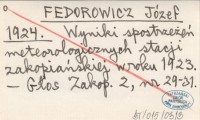 FEDOROWICZ Józef
1924. Wyniki spostrzeżeń
meteorologicznych stacji
zakopiańskiej w roku 1923.
— Głos Zakop. 2, nr 29-31.